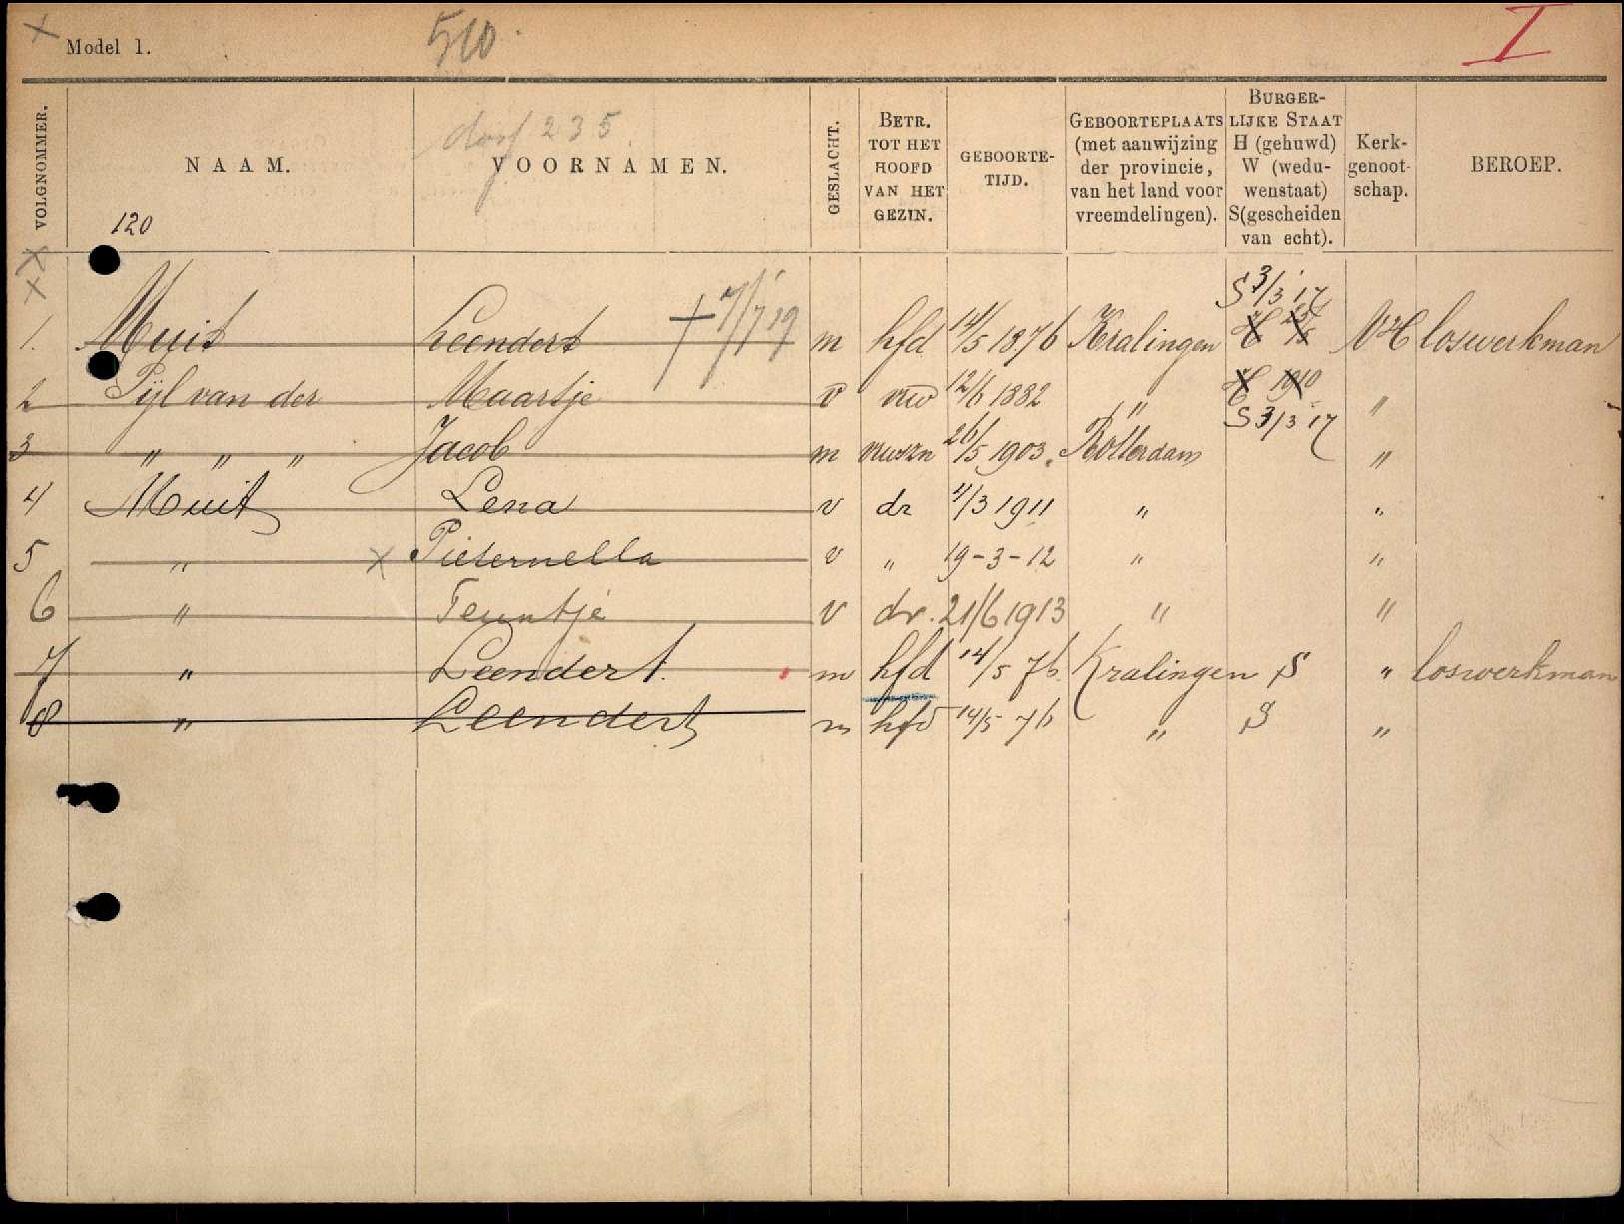 Model 1.
510
I
VOLGNOMMER.
NAAM.
VOORNAMEN.
GESLACHT.
BETR. TOT HET HOOFD VAN HET GEZIN.
GEBOORTE-TIJD.
GEBOORTEPLAATS (met aanwijzing der provincie, van het land voor vreemdelingen).
BURGER-LIJKE STAAT H (gehuwd) W (wedu-wenstaat) S(gescheiden van echt).
Kerk-genoot-schap.
BEROEP.
235
120
S 3/3 17
1. Muit Leendert † 7/7 '19 m hfd 14/5 1876 Kralingen H NH loswerkman
2 Pijl van der Maartje v vw 12/6 1882 " H 1910 "
S 3/3 17
3 " " " Jacob m vwszn 26/5 1903. Rotterdam "
4 Muit Lena v dr 4/3 1911 " "
5 " Pieternella v " 19-3-12 " "
6 " Teuntje v dr. 21/6 1913 " "
7 " Leendert. m hfd 14/5 76. Kralingen S " loswerkman
8 " Leendert m hfd 14/5 76 " S "